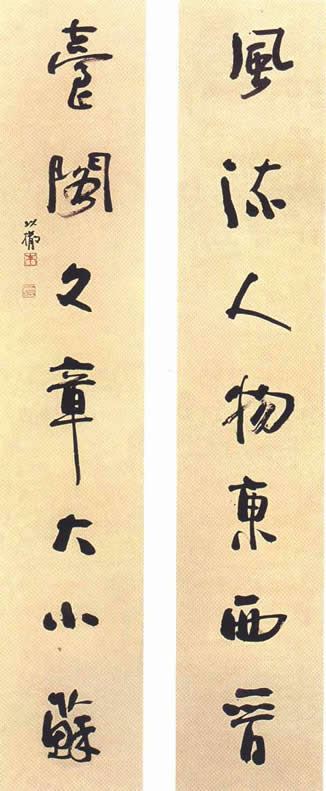 風流人物東西晉
臺閣文章大小蘇